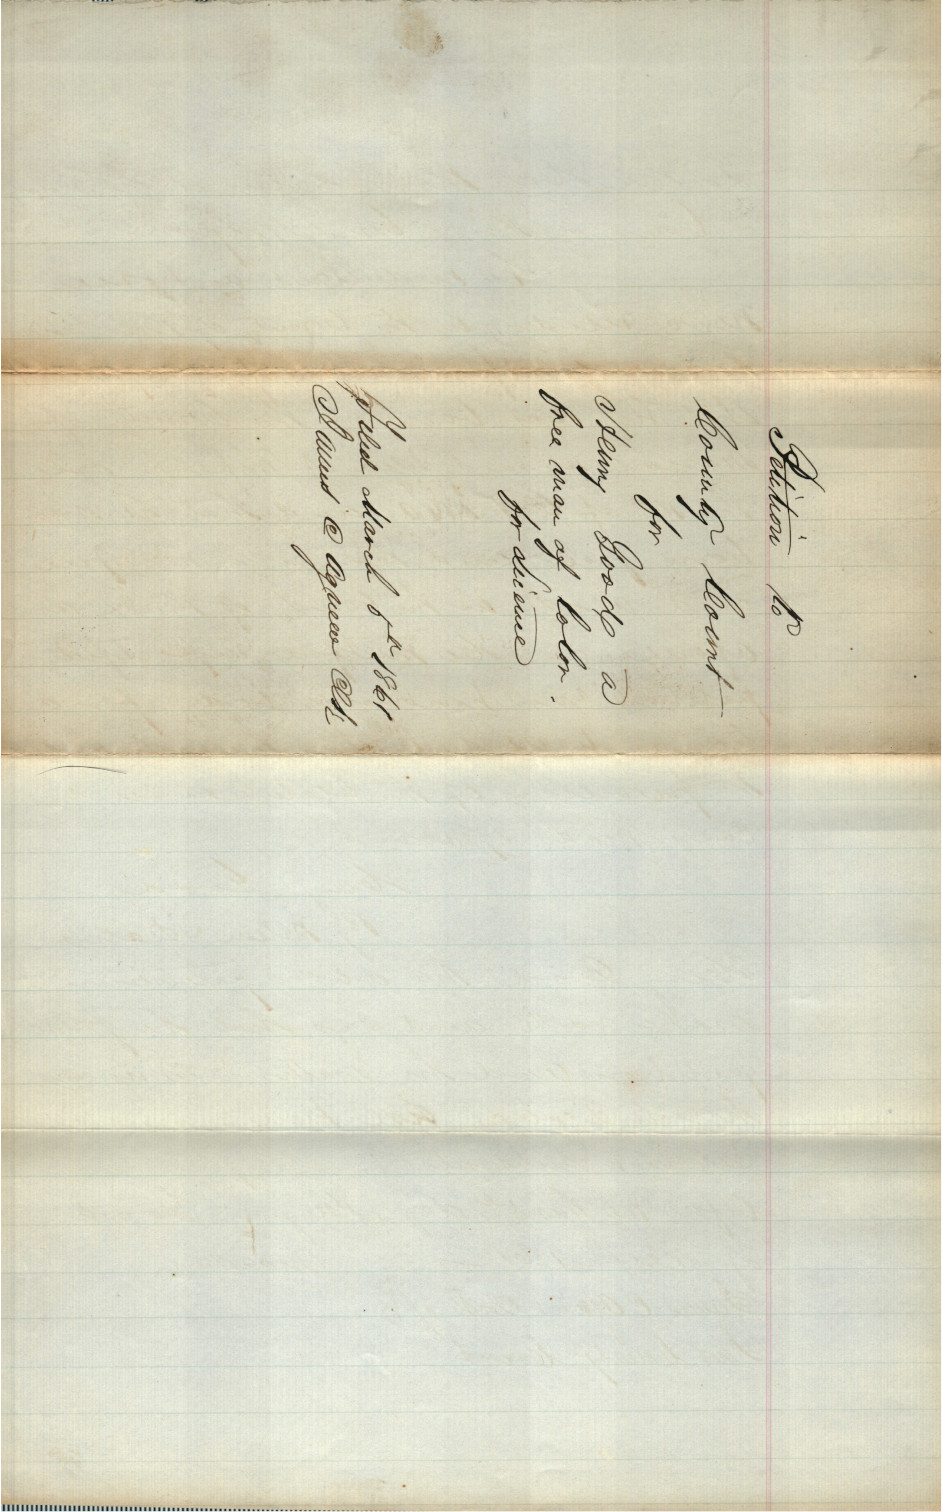 Petition to
County Court
for
Henry Goode a
free man of Color.
for license
Filed March 6th 1861
James C Agnew Clk